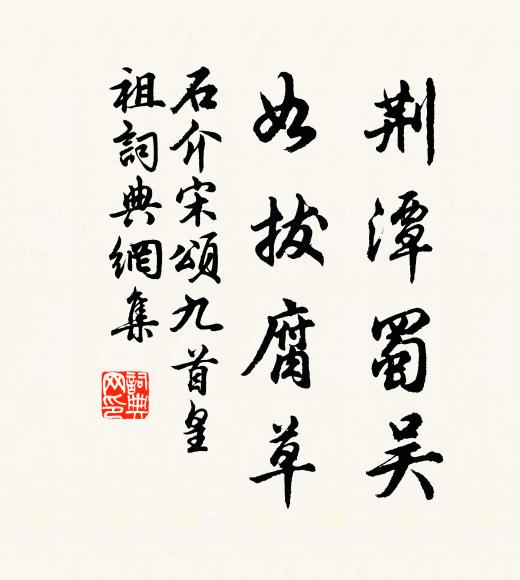 荆潭蜀吴
如拔腐草
石介宋頌九首皇
祖詞典網集
詞典
网印